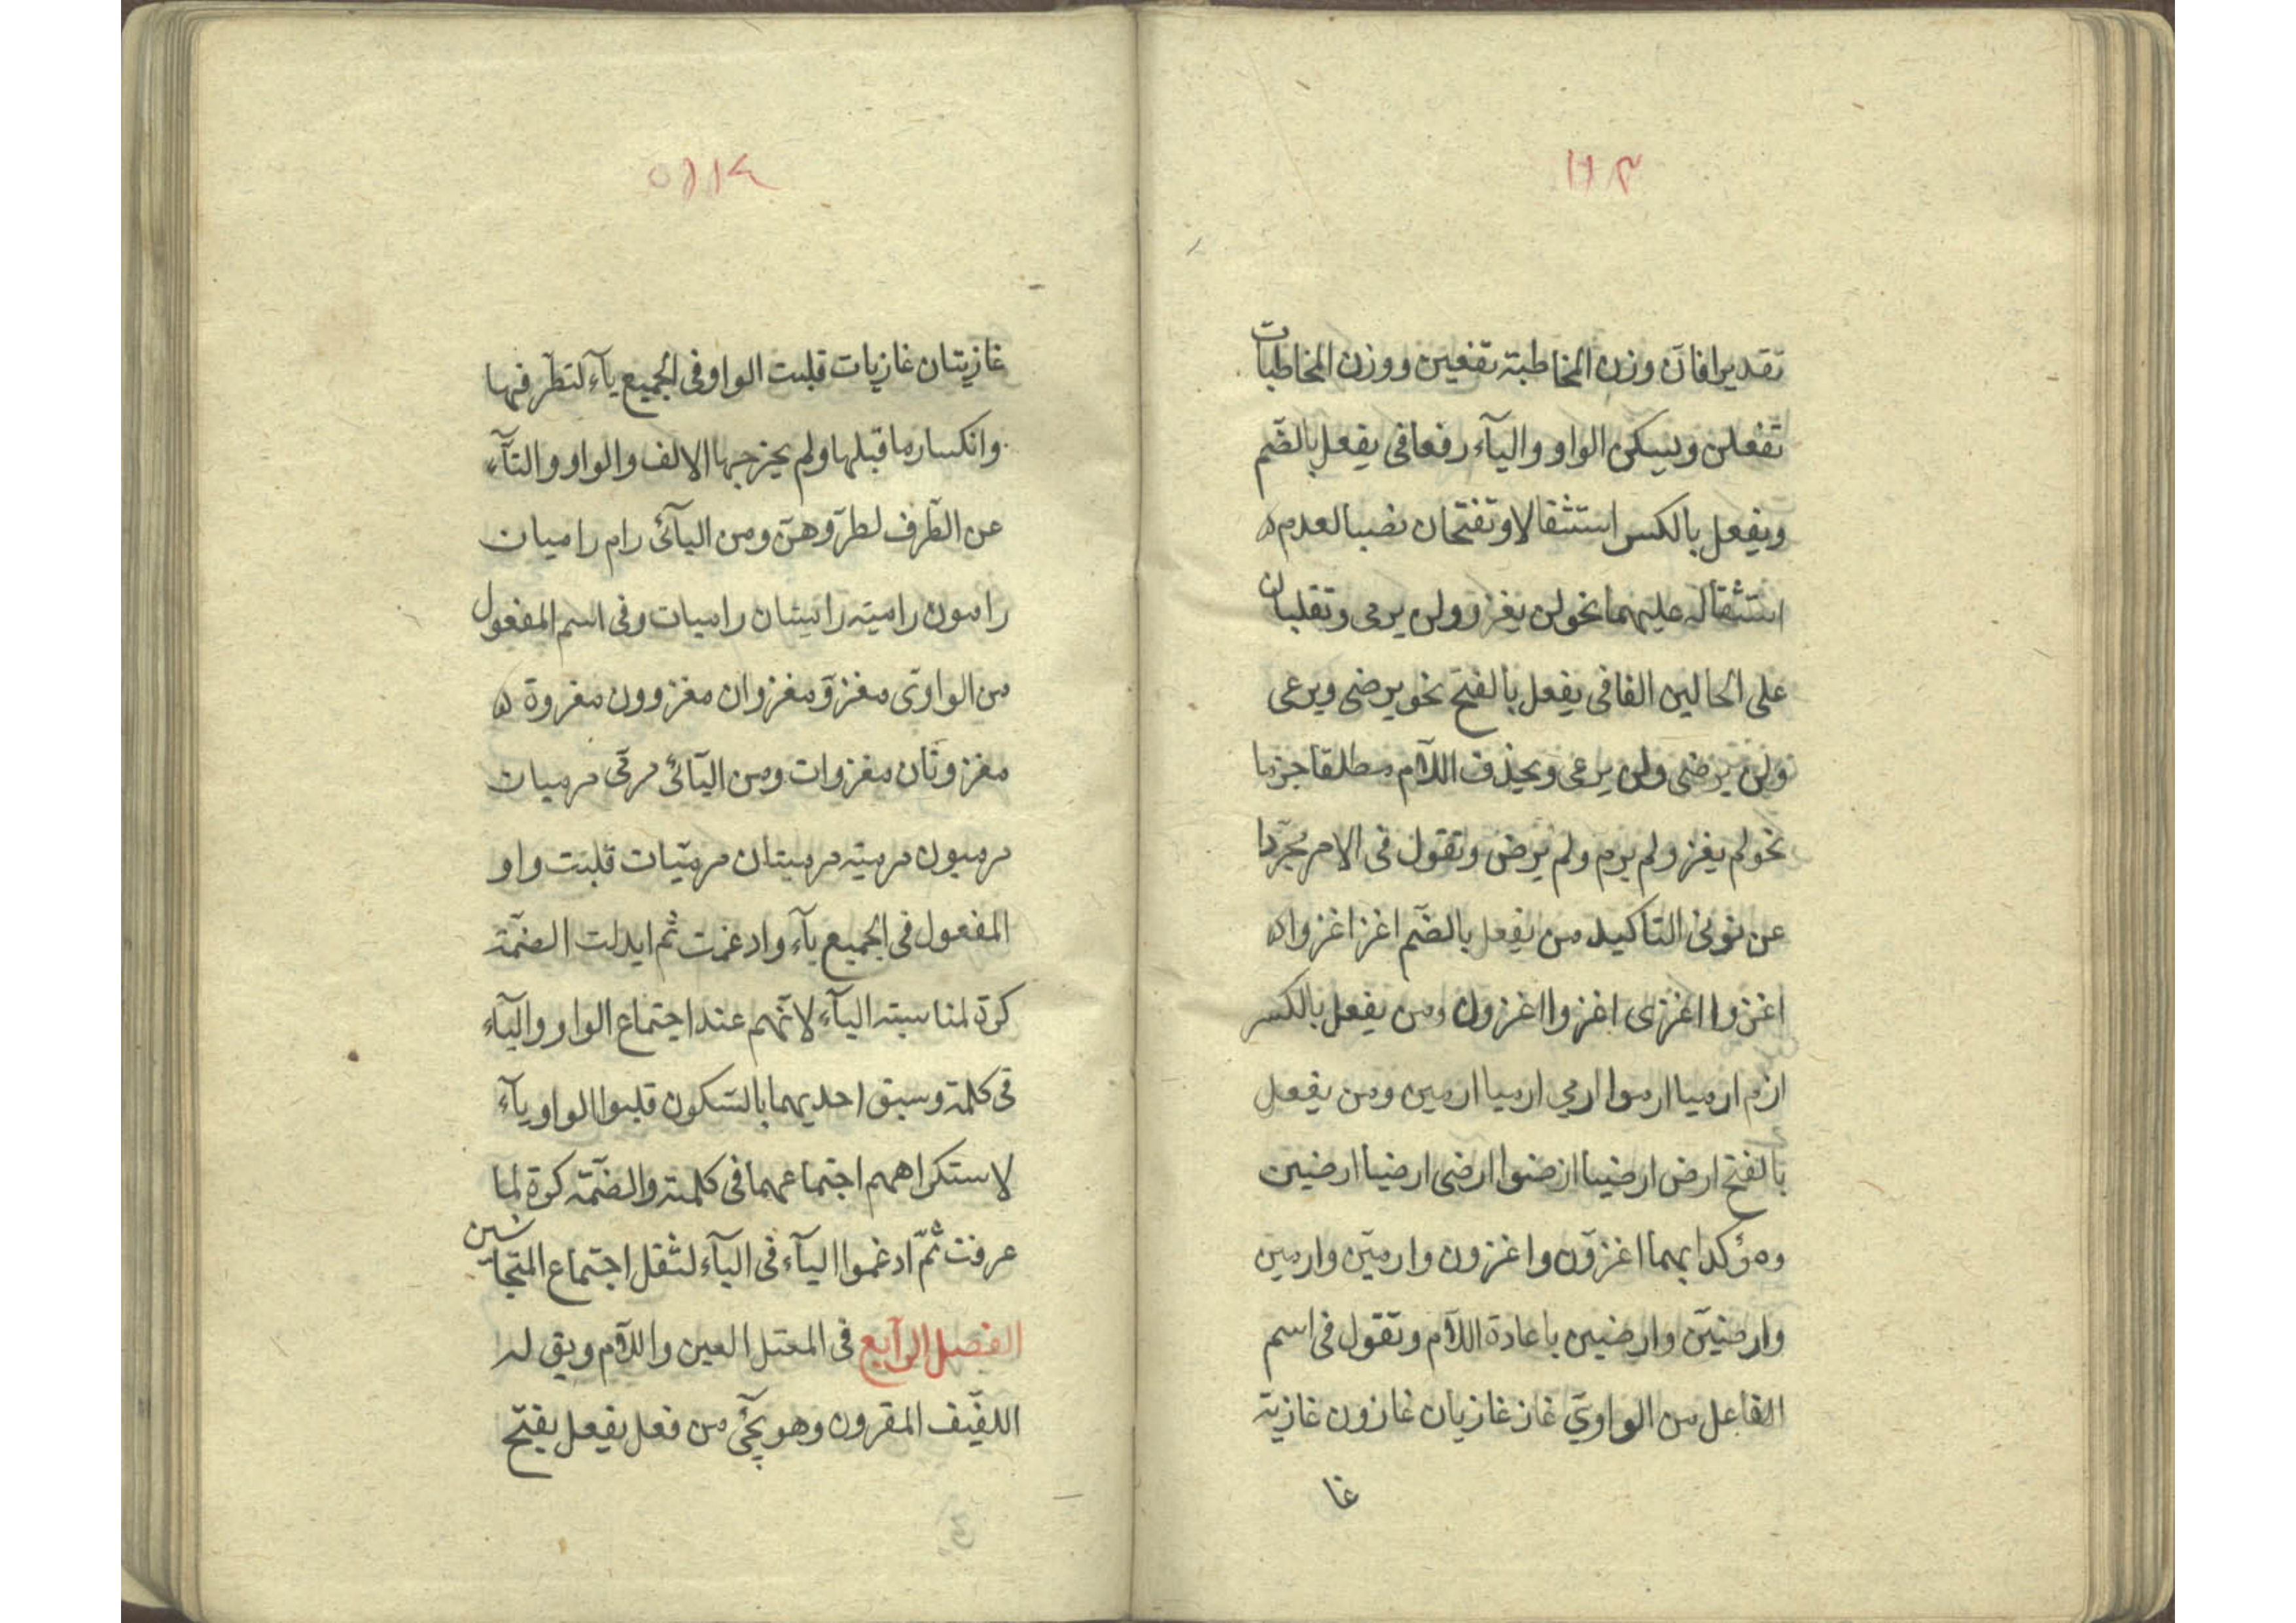 ١١٣
تقديرا فان وزن المخاطبة تفعين ووزن المخاطبات
تفعلن ويسكن الواو والياء رفعا في يفعل بالضم
ويفعل بالكسر استثقالا وتفتحان نصبا لعدم
استثقاله عليهما نحو لن يغزو ولن يرمى وتقلبان
على الحالين الفا فى يفعل بالفتح نحو يرضى ويرعى
ولن يرضى ولن يرعى ويحذف اللام مطلقا جزما
نحو لم يغز ولم يرم ولم يرض وتقول فى الامر مجردا
عن نونى التاكيد من يفعل بالضم اغز اغزوا
اغزوا اغزى اغزوا اغزون ومن يفعل بالكسر
ارم ارميا ارموا ارمي ارميا ارمين ومن يفعل
بالفتح ارض ارضيا ارضوا ارضى ارضيا ارضين
ومؤكدا بهما اغزوّن واغزون وارميّن وارمين
وارضيّن وارضين باعادة اللام وتقول فى اسم
الفاعل من الواوي غاز غازيان غازون غازية
غا
١١٤
غازيتان غازيات قلبت الواو فى الجميع ياء لتطرفها
وانكسار ما قبلها ولم يخرجها الالف والواو والتاء
عن الطرف لطروهن ومن اليائى رام راميان
رامون رامية راميتان راميات وفى اسم المفعول
من الواوى مغزوّ مغزوان مغزوون مغزوة
مغزوتان مغزوات ومن اليائى مرمى مرميان
مرميون مرمية مرميتان مرميّات قلبت واو
المفعول فى الجميع ياء وادغمت ثم ابدلت الضمة
كسرة لمناسبة الياء لانهم عند اجتماع الواو والياء
فى كلمة وسبق احديهما بالسكون قلبوا الواو ياء
لاستكراههم اجتماعهما فى كلمة والضمة كسرة لما
عرفت ثمّ ادغموا الياء فى الياء لثقل اجتماع المتجانسين
الفصل الرابع فى المعتل العين واللام ويق له
اللفيف المقرون وهو يجئ من فعل يفعل بفتح